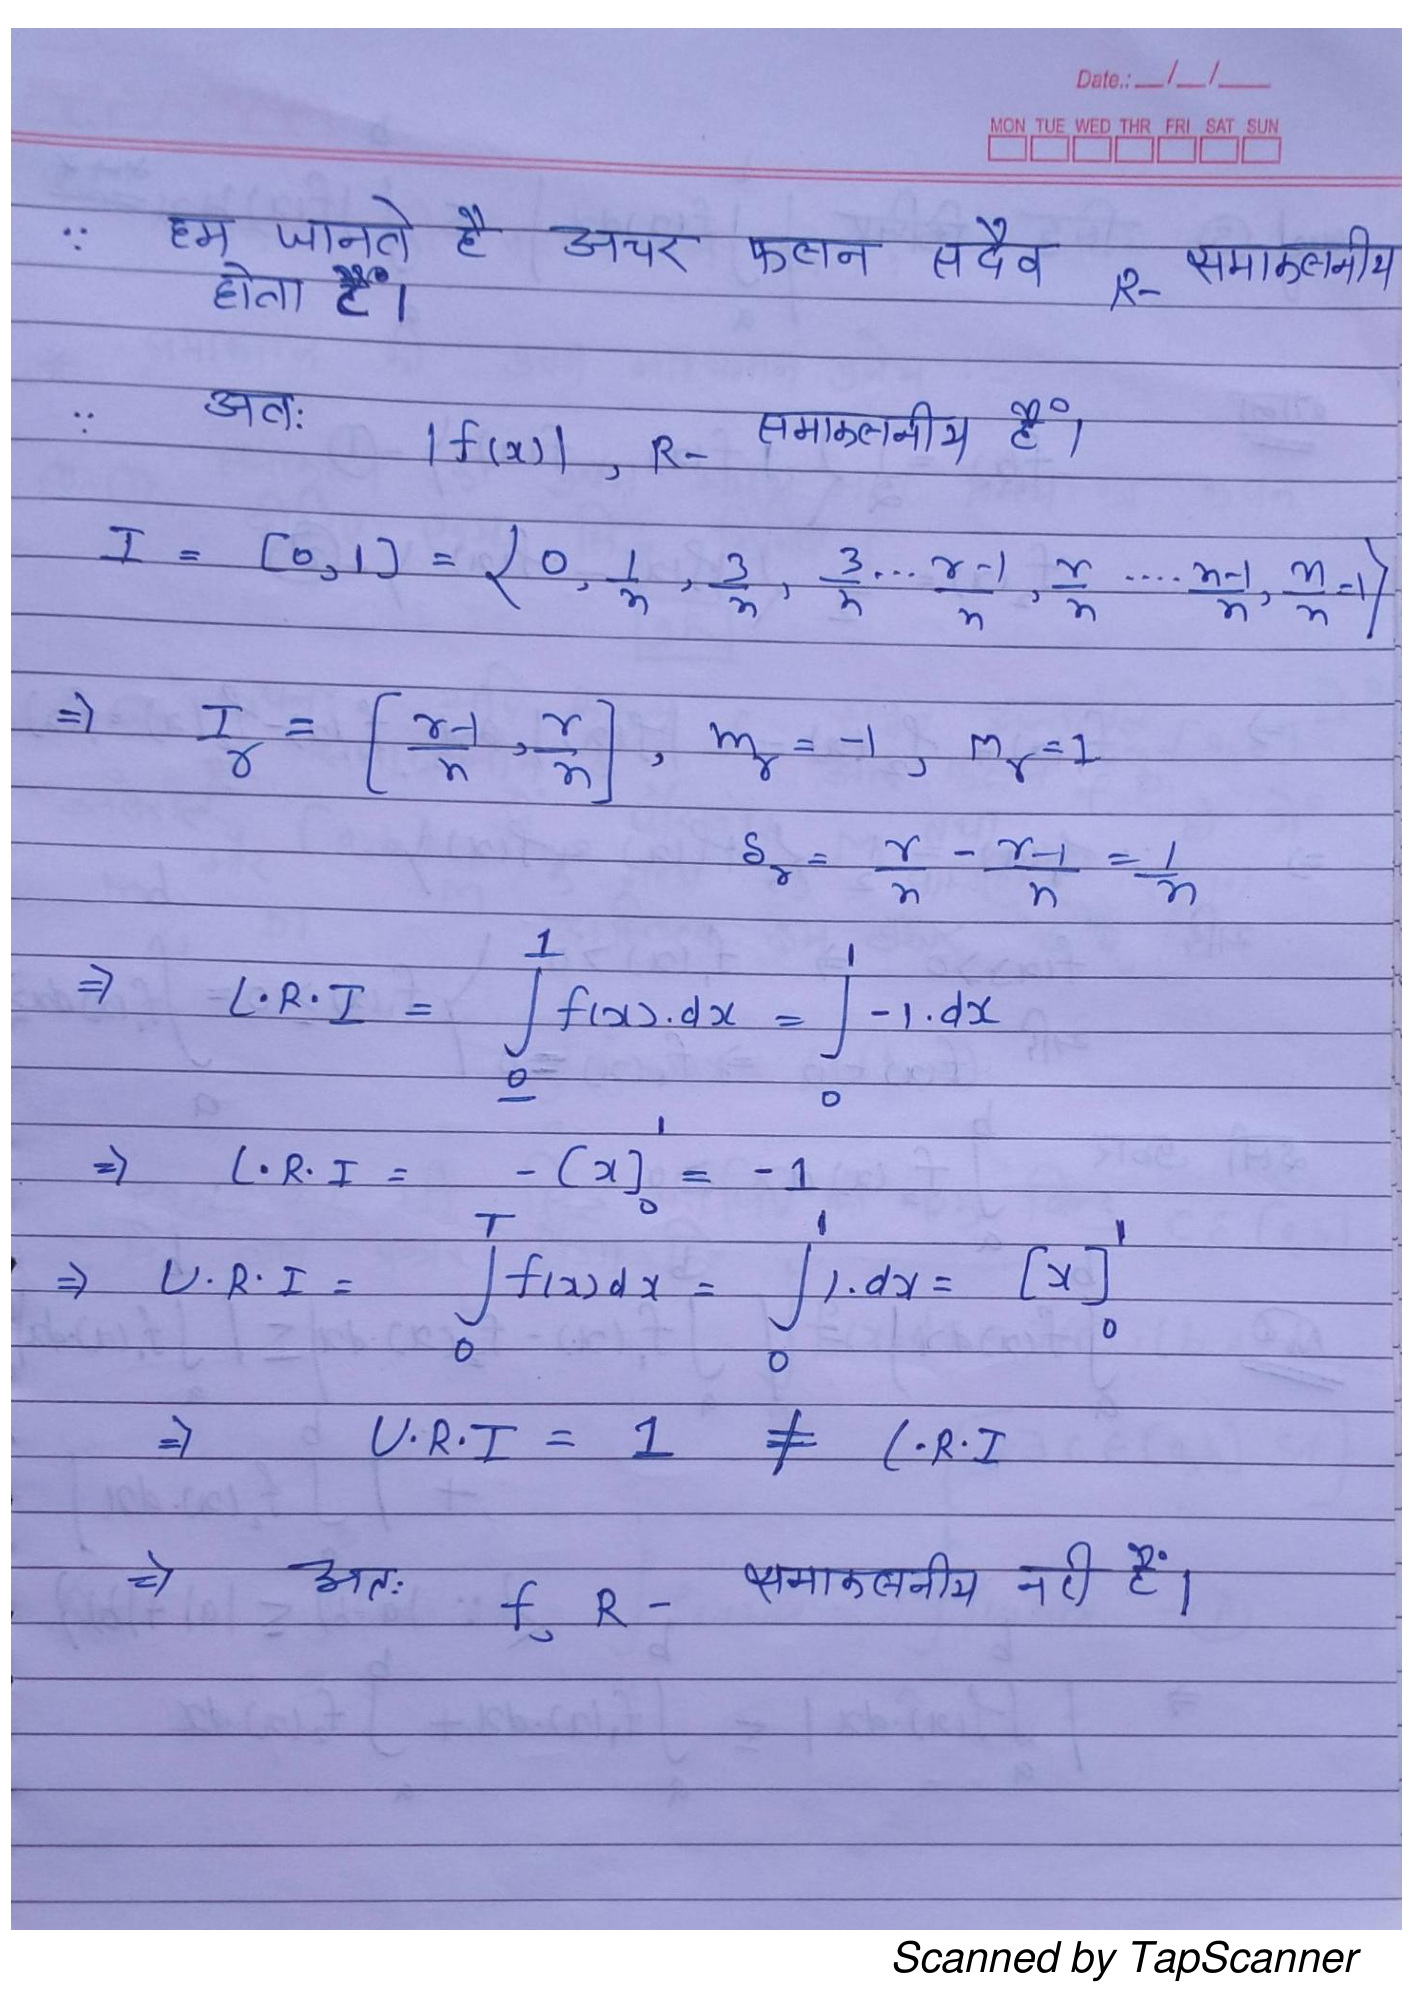 Date.: __/__/___
MON TUE WED THR FRI SAT SUN
∵ हम जानते है अचर फलन सदैव R- समाकलनीय
होता हैं।
∵ अतः |f(x)|, R- समाकलनीय हैं।
I = [0,1] = {0, 1/n, 3/n, 3/n ... r-1/n, r/n .... n-1/n, n/n =1}
⇒ I_r = [r-1/n, r/n], m_r = -1, m_r = 1
δ_r = r/n - r-1/n = 1/n
⇒ L.R.I = ∫_0^1 f(x).dx = ∫_0^1 -1.dx
⇒ L.R.I = -[x]_0^1 = -1
⇒ U.R.I = ∫_0^1 f(x)dx = ∫_0^1 1.dx = [x]_0^1
⇒ U.R.I = 1 ≠ L.R.I
⇒ अतः f, R- समाकलनीय नही हैं।
Scanned by TapScanner